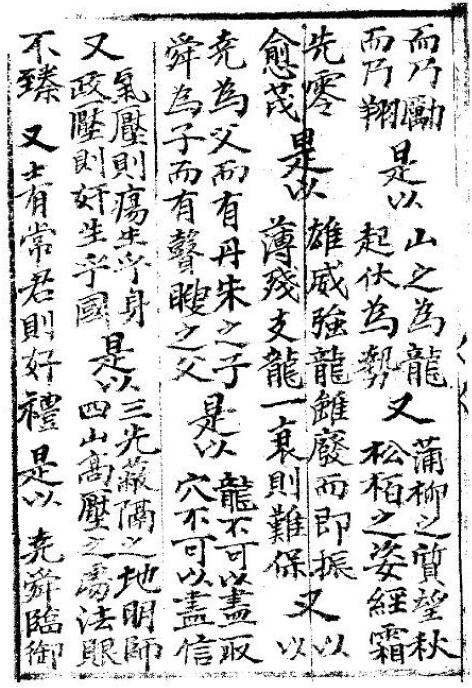 而乃勵 是以 山之為龍 又 蒲柳之質望秋
而乃翔 起伏為勢 松栢之姿經霜
先零 是以 雄威強龍雖廢而即振 又 以
愈茂 薄殘支龍一衰則難保 以
堯為父而有丹朱之子 是以 龍不可以盡取
舜為子而有瞽瞍之父 穴不可以盡信
又 氣壓則瘍生乎身 是以 三光蔽隔之地明師
政壓則奸生乎國 四山高壓之處法眼
不臻 又 士有常君則好禮 是以 堯舜臨御